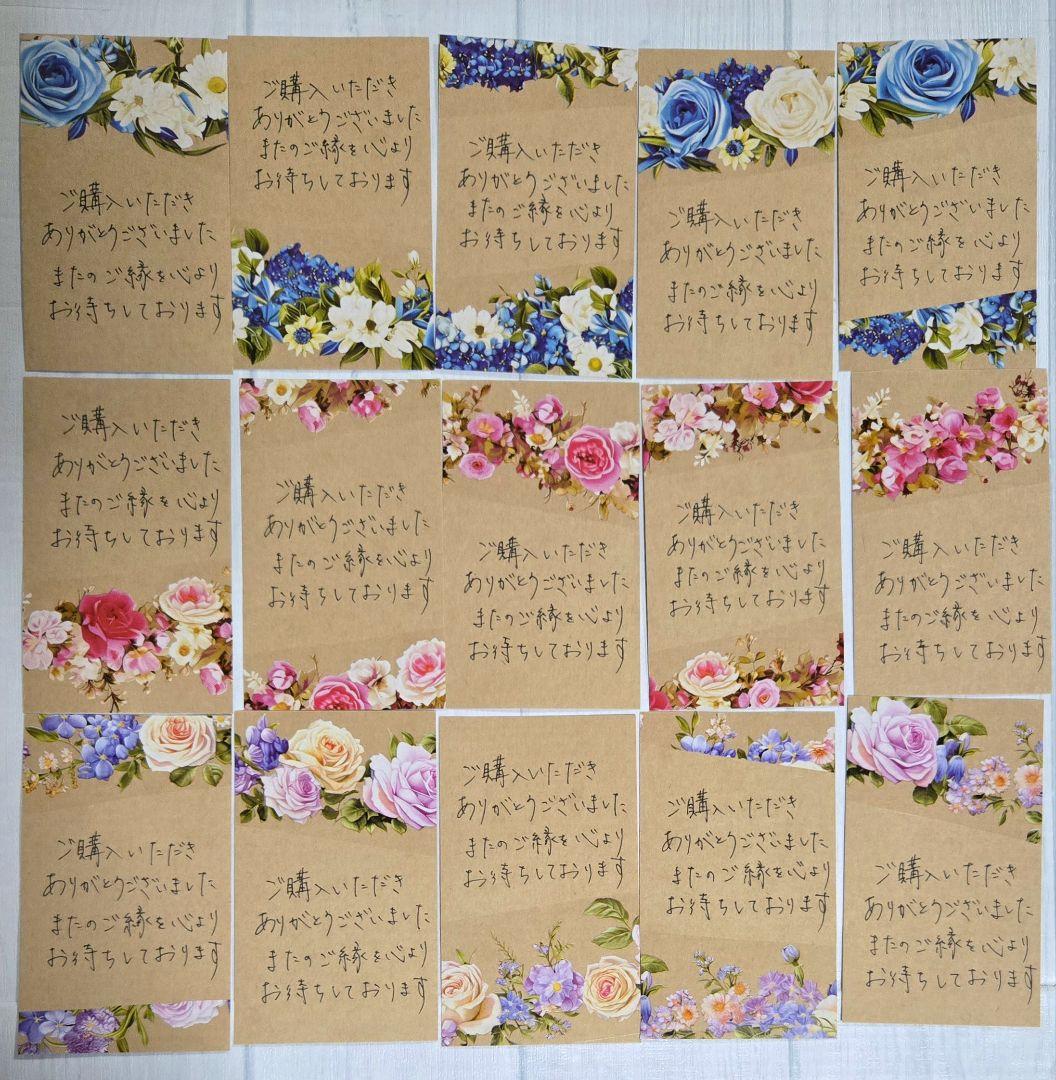 ご購入いただき
ありがとうございました
またのご縁を心より
お待ちしております
ご購入いただき
ありがとうございました
またのご縁を心より
お待ちしております
ご購入いただき
ありがとうございました
またのご縁を心より
お待ちしております
ご購入いただき
ありがとうございました
またのご縁を心より
お待ちしております
ご購入いただき
ありがとうございました
またのご縁を心より
お待ちしております
ご購入いただき
ありがとうございました
またのご縁を心より
お待ちしております
ご購入いただき
ありがとうございました
またのご縁を心より
お待ちしております
ご購入いただき
ありがとうございました
またのご縁を心より
お待ちしております
ご購入いただき
ありがとうございました
またのご縁を心より
お待ちしております
ご購入いただき
ありがとうございました
またのご縁を心より
お待ちしております
ご購入いただき
ありがとうございました
またのご縁を心より
お待ちしております
ご購入いただき
ありがとうございました
またのご縁を心より
お待ちしております
ご購入いただき
ありがとうございました
またのご縁を心より
お待ちしております
ご購入いただき
ありがとうございました
またのご縁を心より
お待ちしております
ご購入いただき
ありがとうございました
またのご縁を心より
お待ちしております